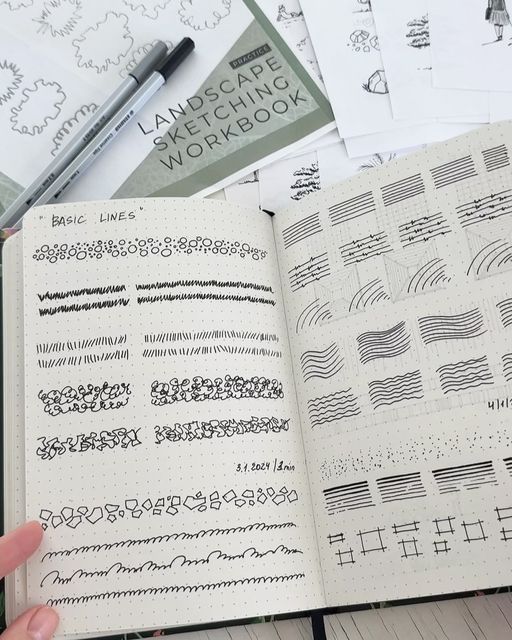 PRACTICE
LANDSCAPE
SKETCHING
WORKBOOK
" BASIC LINES "
3.1.2024 / 3 min
4/1/